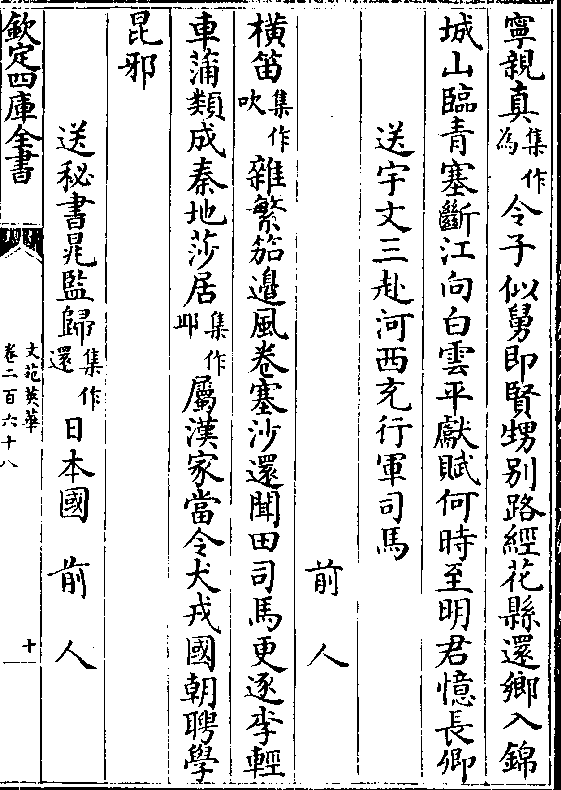 寧親真集作為令子似舅即賢甥別路經花縣還鄉入錦
城山臨青塞斷江向白雲平獻賦何時至明君憶長卿
送宇文三赴河西充行軍司馬
前人
橫笛集作吹雜繁笳邉風卷塞沙還聞田司馬更逐李輕
車蒲類成秦地莎居集作耶屬漢家當令犬戎國朝聘學
昆邪
送秘書晁監歸集作還日本國　前人
欽定四庫全書
文苑英華
卷二百六十八
十